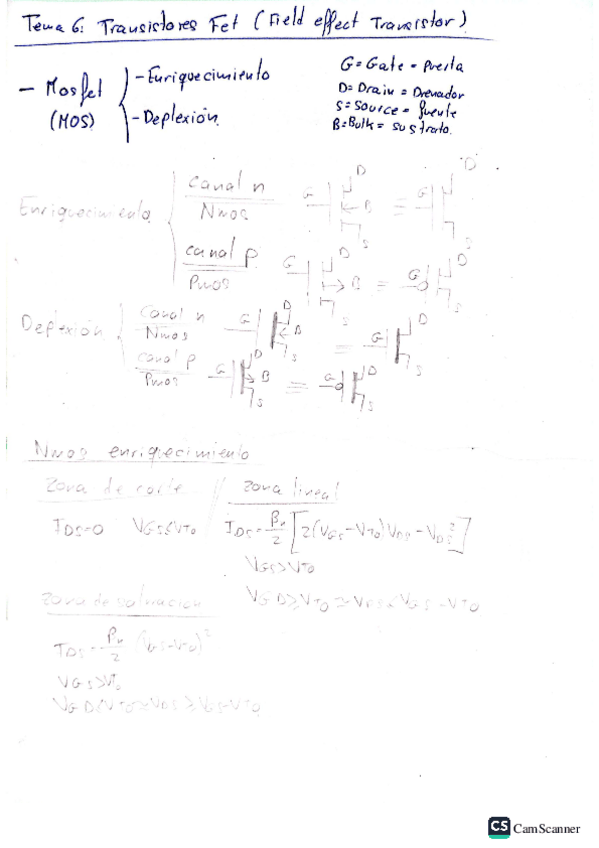 Tema 6: Transistores Fet (Field effect Transistor).
- Mosfet - Enriquecimiento
(MOS) - Deplexión
G = Gate = Puerta
D = Drain = Drenador
S = Source = fuente
B = Bulk = sustrato.
Enriquecimiento
canal n
Nmos
G D B S ≡ G D S
canal p
Pmos
G D B S ≡ G D S
Deplexión
canal n
Nmos
G D B S ≡ G D S
canal p
Pmos
G D B S ≡ G D S
Nmos enriquecimiento
Zona de corte // Zona lineal
IDS=0 VGS≤VTO IDS=βn/2 [2(VGS-VTO)VDS-VDS²]
VGS>VTO
VGD≥VTO ≃ VDS<VGS-VTO
Zona de saturacion
IDS=βn/2 (VGS-VTO)²
VGS>VTO